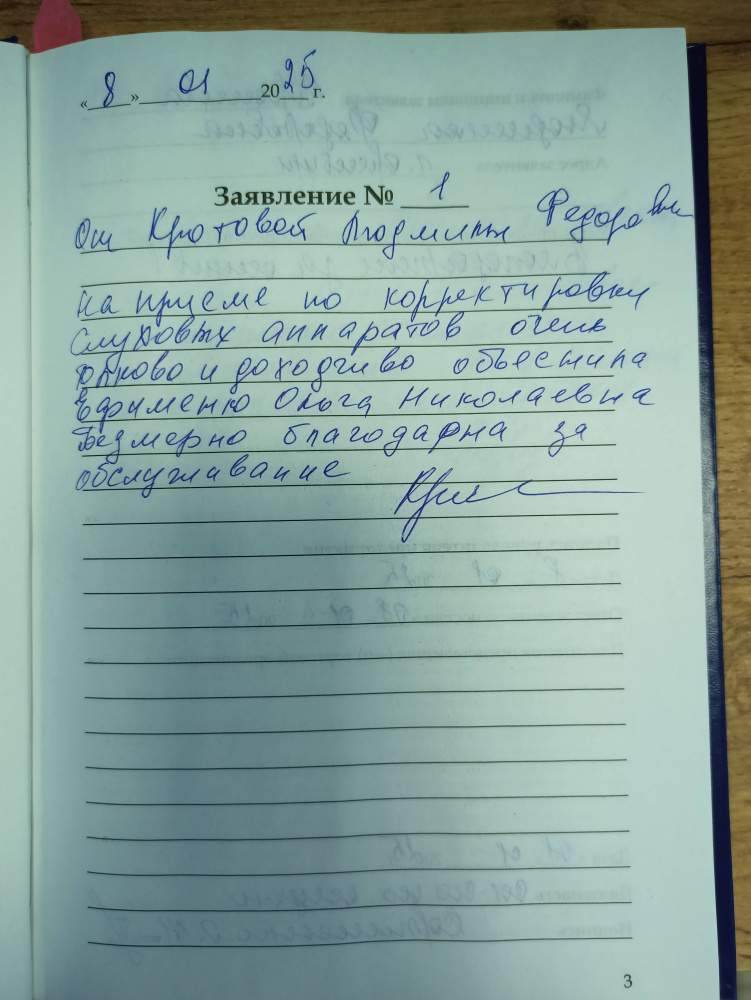 «8» 01 2025 г.
Заявление № 1
От Кротовой Людмилы Федоровны
на приеме по корректировки
слуховых аппаратов очень
толково и доходчиво объеснила
Ефименко Ольга Николаевна
Безмерно благодарна за
обслуживание
3